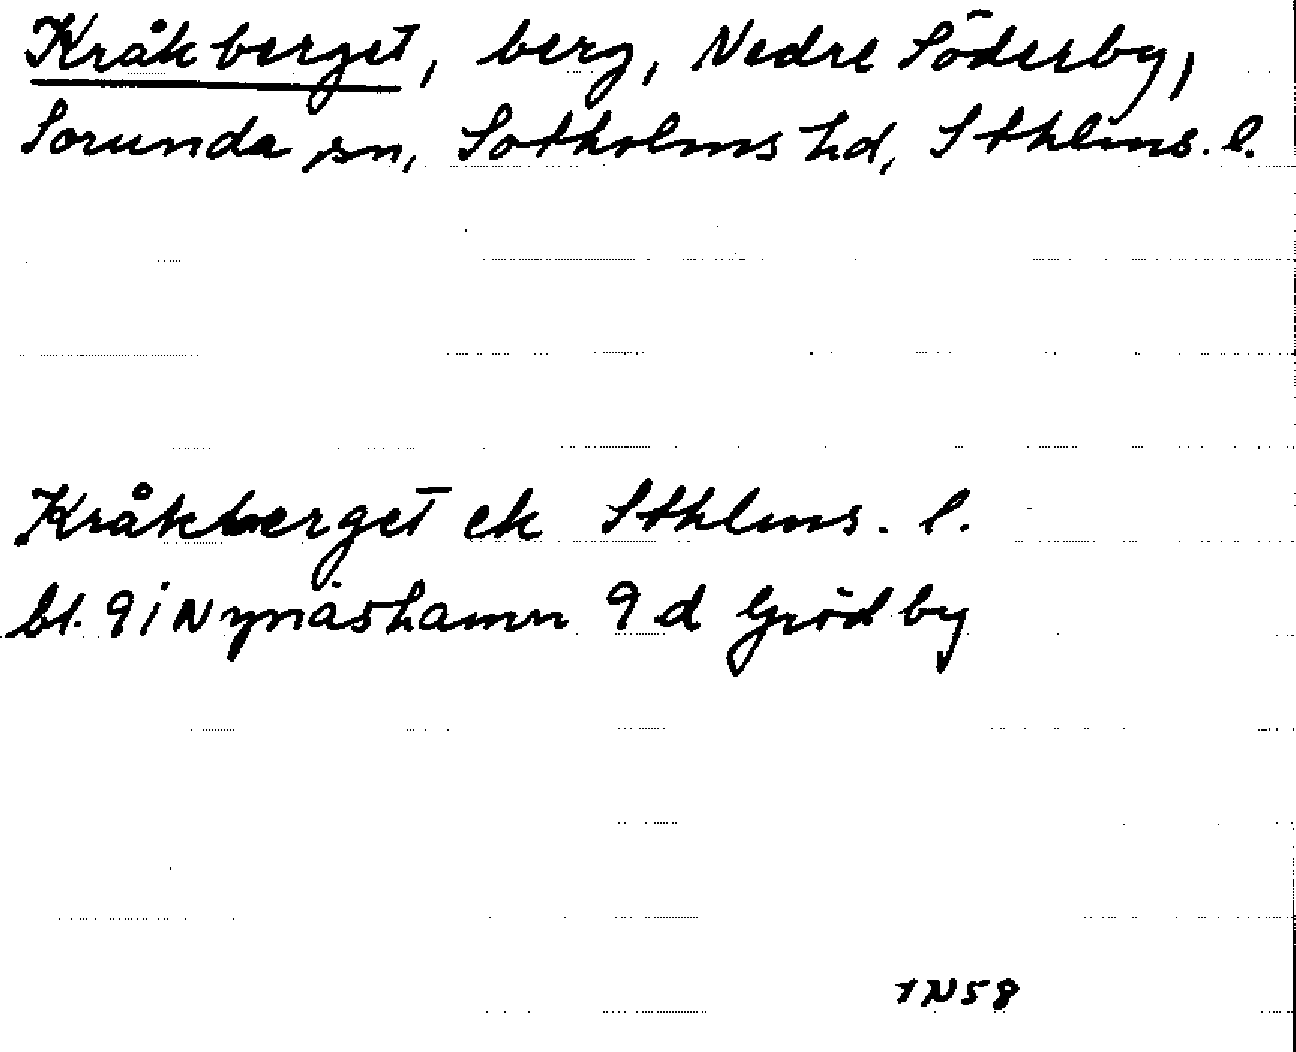 Kråkberget, berg, Nedre Söderby,
Sorunda sn, Sotholms hd, Sthlms. l.
Kråkberget ek Sthlms. l.
bl. 9 i Nynäshamn 9 d Grödby
1N58